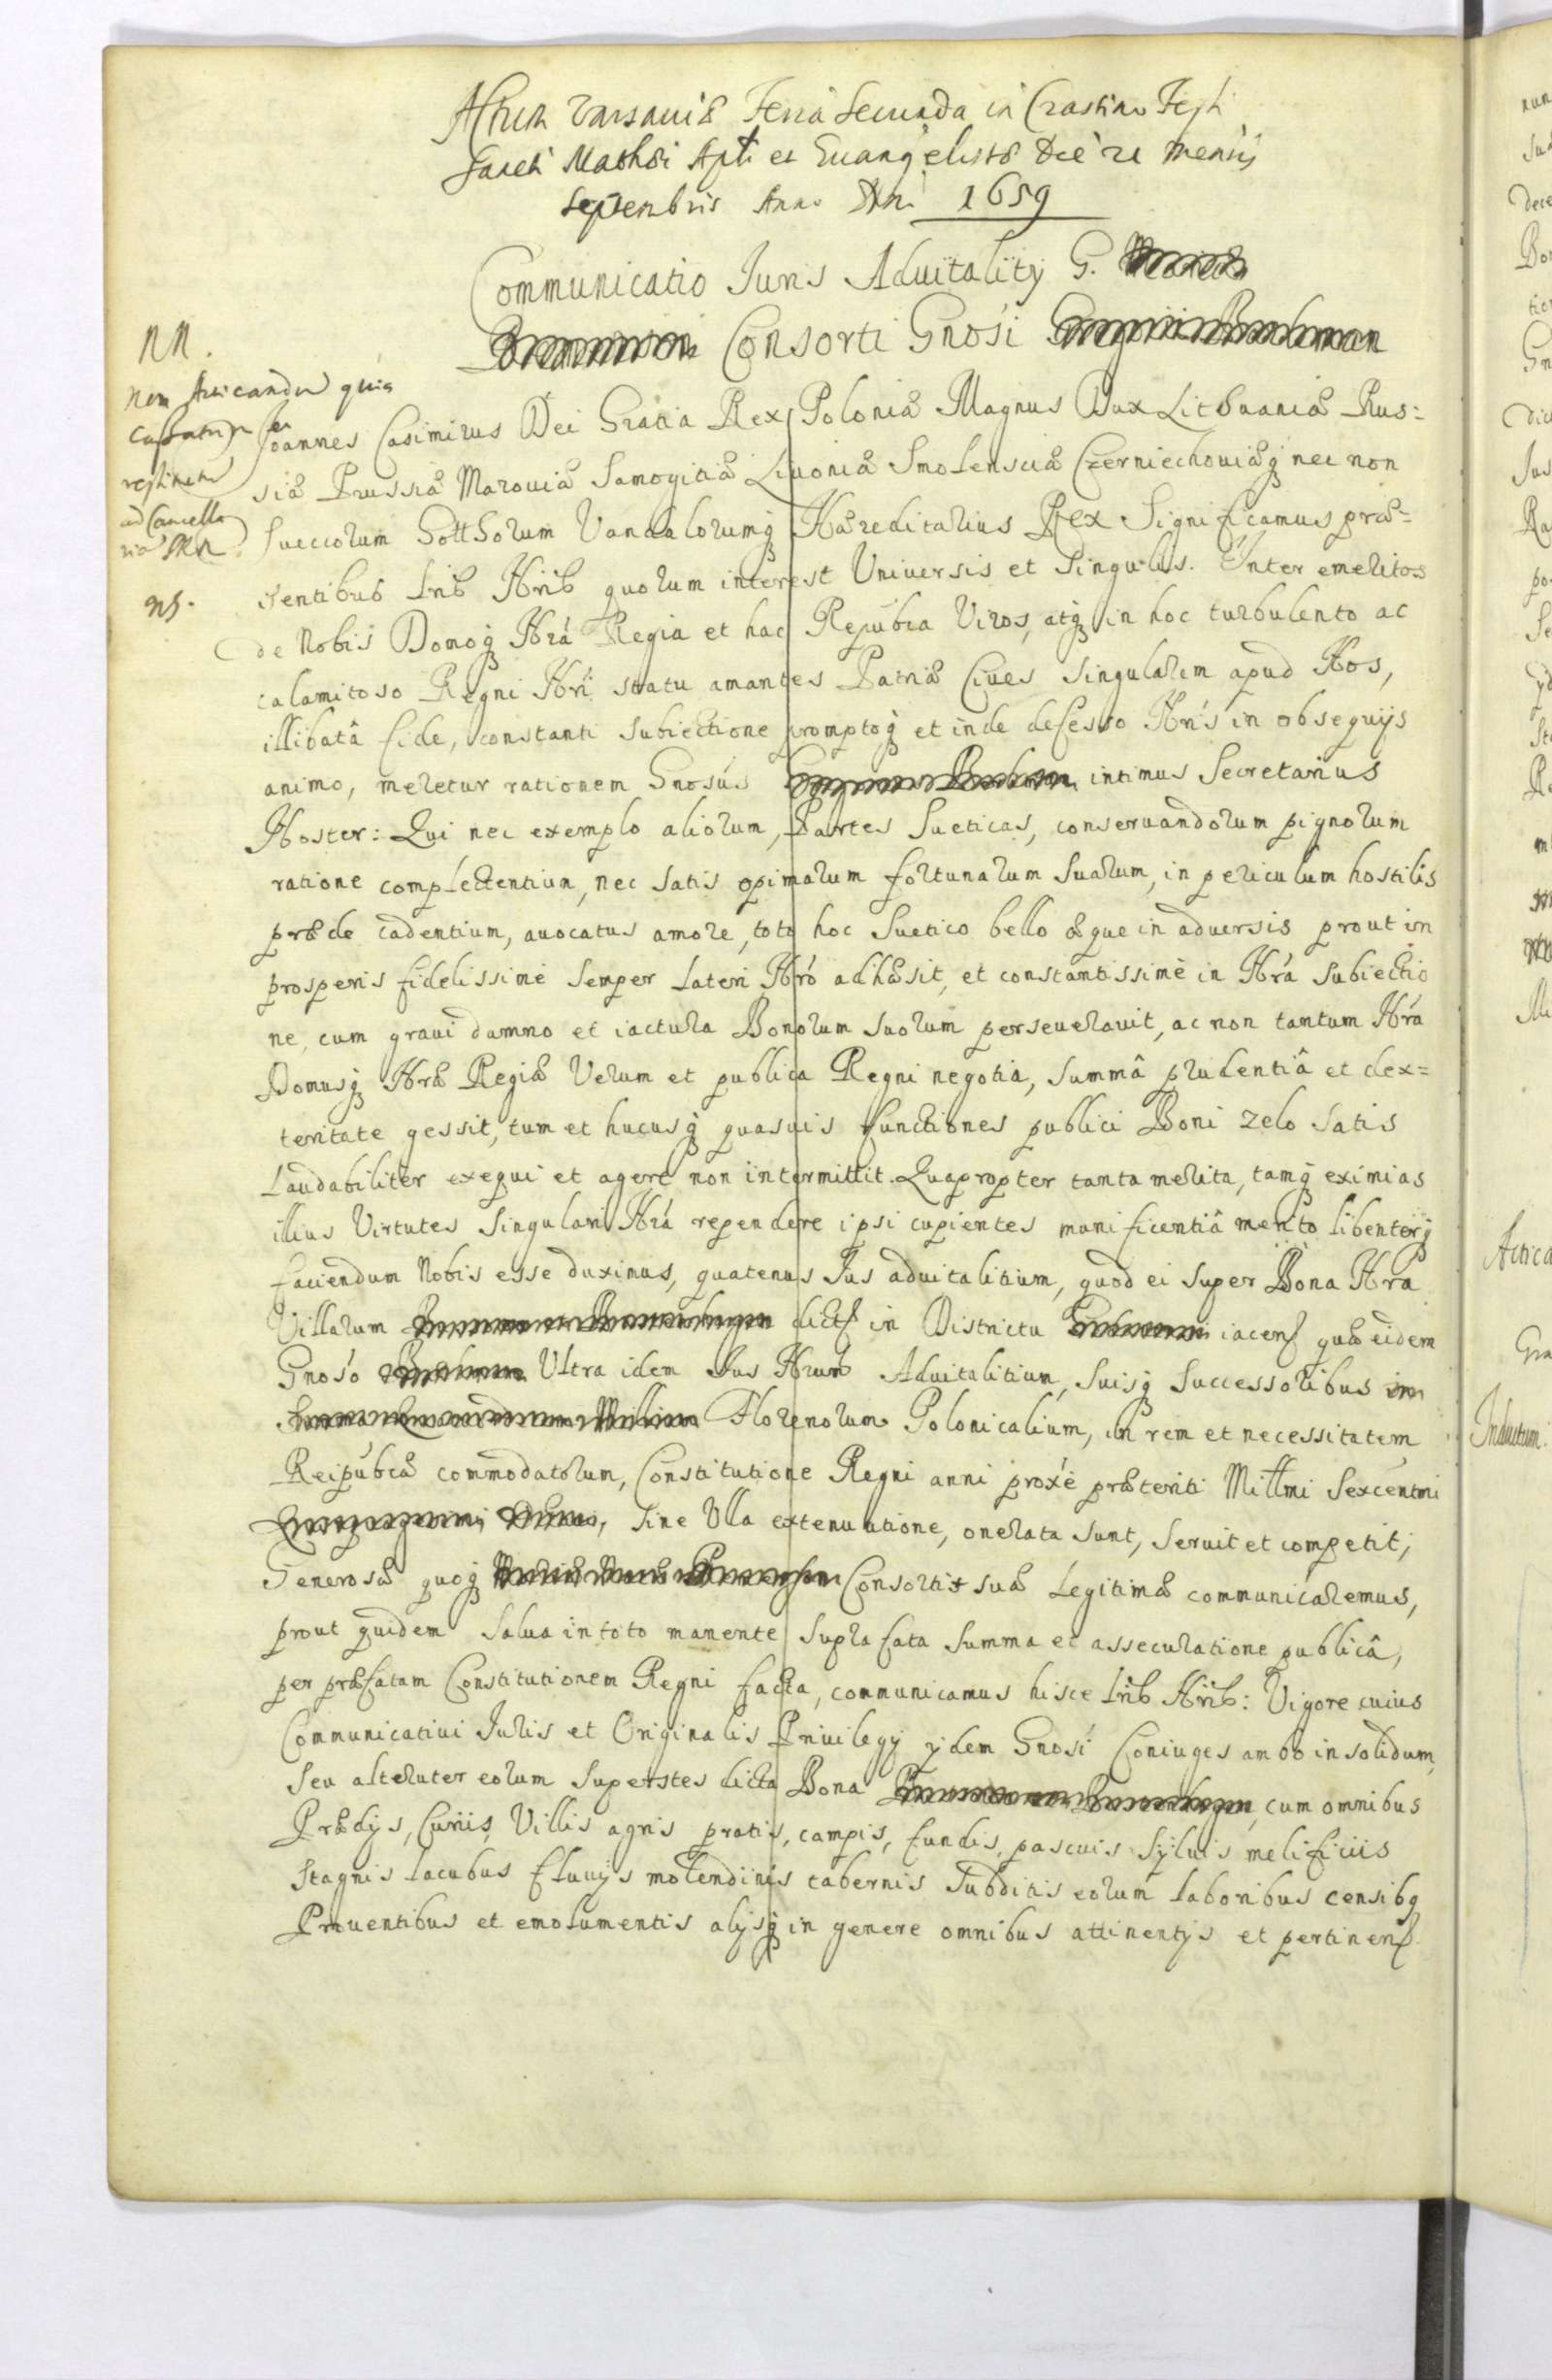 Actum Varsaviæ Feria Secunda in Crastino Festi
Sancti Mathæi Apli et Euangelistæ Die 22 Mensis
Septembris Anno Dni 1659
Communicatio Iuris Aduitalitÿ G.
Consorti Gnosi
NN.
non
quia
restituta
ad Cancella
NB.
Joannes Casimirus Dei Gratia Rex Poloniæ Magnus Dux Lithuaniæ Rus=
siæ Prussiæ Mazouiæ Samogitiæ Liuoniæ Smolensciæ Czerniechouiæq nec non
Sueccorum Gotthorum Vandalorumq Hæreditarius Rex Significamus præ=
sentibus Lrib Nrib quorum interest Universis et Singulis. Inter emeritos
de Nobis Domoq Nrá Regia et hac Repubca Viros, atq in hoc turbulento ac
calamitoso Regni Nri statu amantes Patriæ Ciues Singularem apud Nos,
illibatâ fide, constanti Subiectione promptoq et inde defesso Nris in obsequÿs
animo, meretur rationem Gnosus intimus Secretarius
Noster: Qui nec exemplo aliorum, Partes Sueticas, conseruandorum pignorum
ratione complectentium, nec Satis opimarum fortunarum Suarum, in periculum hostilis
prædæ cadentium, auocatus amore, toto hoc Suetico bello æque in aduersis prout in
prosperis fidelissime Semper Lateri Nro adhæsit, et constantissimè in Nrá Subiectio
ne, cum graui damno et iactura Bonorum Suorum perseuerauit, ac non tantum Nrá
Domusq Nræ Regiæ Verum et publica Regni negotia, Summâ prudentiâ et dex=
teritate gessit, tum et hucusq quasuis functiones publici Boni zelo Satis
Laudabiliter exequi et agere non intermittit. Quapropter tanta merita, tamq eximias
illius Virtutes Singulari Nrá rependere ipsi cupientes munificentiâ merito libenterq
faciendum Nobis esse duximus, quatenus Jus aduitalitium, quod ei Super Bona Nra
Villarum dict in Districtu iacen quæ eidem
Gnoso Ultra idem Jus Aduitalitium, Suisq Successoribus in
Florenorum Polonicalium, in rem et necessitatem
Reipubcæ commodatorum, Constitutione Regni anni proxé præteriti Millmi Sexcentmi
Sine Ulla extenuatione, onerata Sunt, Seruit et competit,
Generosæ quoq Consorti Suæ Legitimæ communicaremus,
prout quidem Salua in toto manente Suprafata Summa et asseculatione publicâ,
per præfatam Constitutionem Regni facta, communicamus hisce Lrib Nrib: Vigore cuius
Communicatiui Juris et Originalis Priuilegÿ ÿdem Gnosi Coniuges ambo insolidum,
Seu alteruter eorum Superstes dicta Bona cum omnibus
Prædÿs, Curiis, Villis agris pratis, campis, fundis, pascuis Sÿluis melificiis
Stagnis Lacubus fluuÿs molendinis tabernis Subditis eorum Laboribus censibq
Prouentibus et emolumentis alÿsq in genere omnibus attinentÿs et pertinen